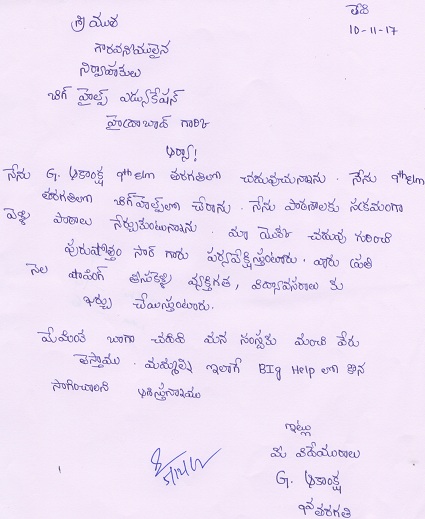 తేది
10-11-17
శ్రీయుత
గౌరవనీయులైన
నిర్వాహకులు
బిగ్ హెల్ప్ ఎడ్యుకేషన్
హైద్రాబాద్ గారికి
ఆర్యా!
నేను G. ఆకాంక్ష 9th elm తరగతిలో చదువుచున్నాను. నేను 9th elm
తరగతిలో బిగ్‌హెల్ప్‌లో చేరాను. నేను పాఠశాలకు సక్రమంగా
వెళ్ళి పాఠాలు నేర్చుకుంటున్నాను. మా యొక్క చదువు గురించి
పురుషోత్తం సార్ గారు పర్యవేక్షిస్తుంటారు. వారు ప్రతి
నెల షాపింగ్ తీసుకెళ్ళి వ్యక్తిగత, విద్యావసరాలకు
ఖర్చు చేయిస్తుంటారు.
మేమంత బాగా చదివి మన సంస్థకు మంచి పేరు
తెస్తాము. మమ్మల్ని ఇలాగే BIg Help లో కొన
సాగించాలని ఆశిస్తున్నాము
ఇట్లు
మీ విధేయురాలు
G. ఆకాంక్ష
తరగతి